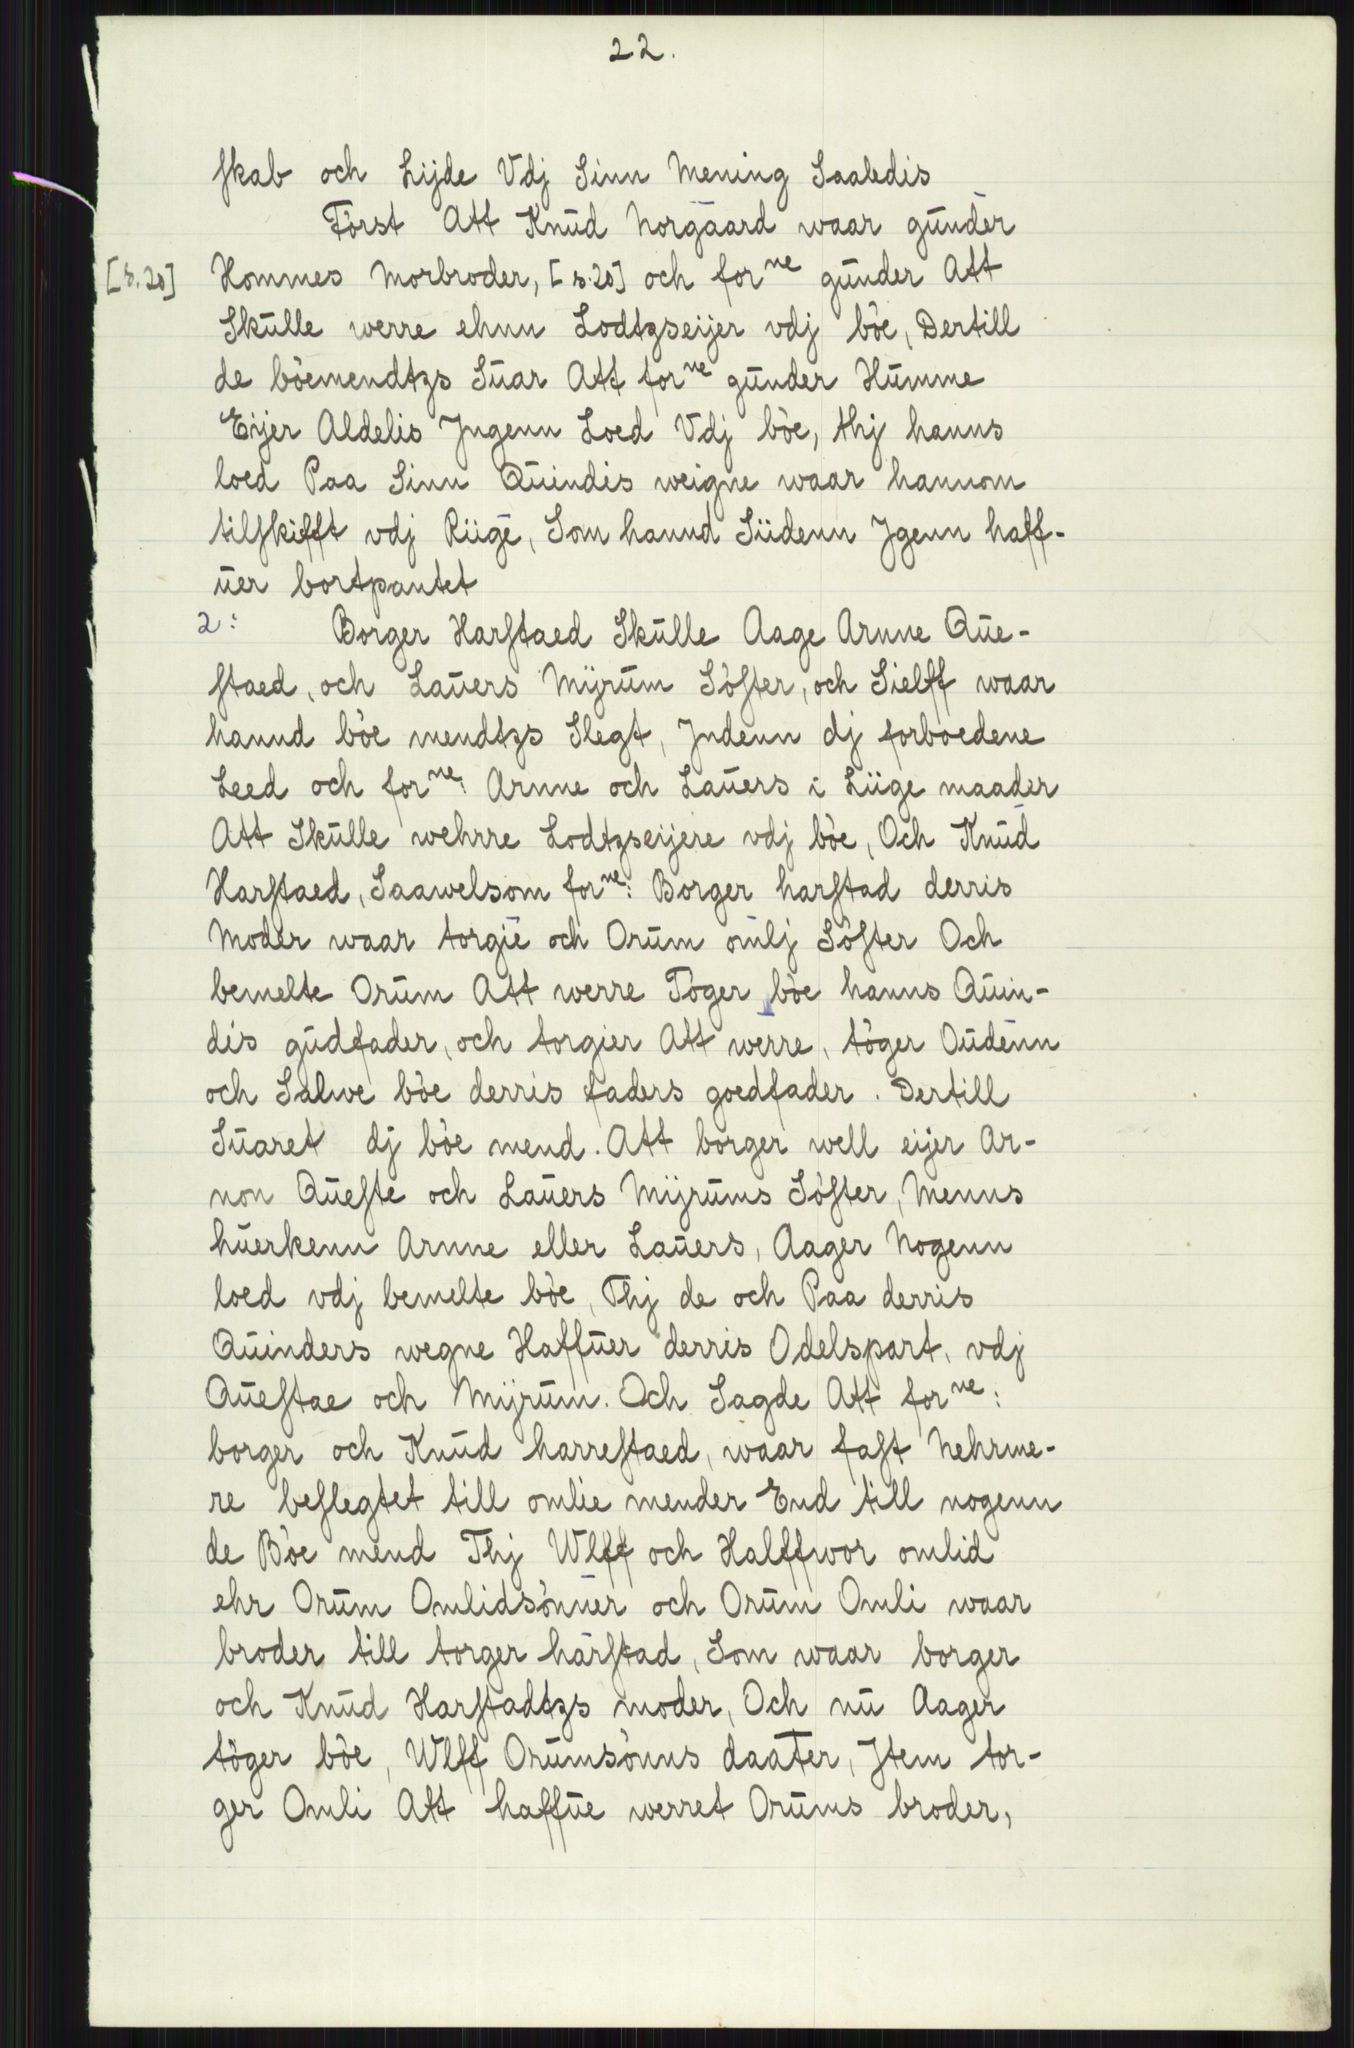 22.
skab och Lijde Vdj Sinn Mening Saaledis
Först Att Knūd Norgaard waar gūnder
[s.20] Hommes Morbroder, [s.20] och for<sup>ne</sup> gūnder Att
Skūlle werre ehnn Lodtzseijer vdj bòe, Dertill
de bòemendtzs Sūar Att for<sup>ne</sup> gūnder Hūmme
Eijer Aldelis Jngenn Loed Vdj bòe, thj hanns
loed Paa Sinn Qūindis weigne waar hannom
tilskifft vdj Riige, Som hannd Siidenn Jgenn haff-
ūer bortpantet
2: Borger Harstaed Skūlle Aage Arnne Qūe-
staed, och Laūers Mÿrūm Sòster, och Sielff waar
hannd bòe mendtzs Slegt, Jndenn dj forboedene
Leed och for<sup>ne</sup>: Arnne och Laūers i Liige maader
Att Skūlle wehrre Lodtzseijere vdj bòe, Och Knūd
Harstaed, Saawelsom for<sup>ne</sup>: Borger harstad derris
Moder waar torgie och Orūm omlj Sòster Och
bemelte Orūm Att werre Tòger bòe hanns Qūin-
dis gūdfader, och torgier Att werre, tòger Oūdenn
och Salwe bòe derris faders goedfader. Dertill
Sūaret dj bòe mend. Att borger well eijer Ar-
non Qūeste och Laūers Mÿrūms Sòster, Menns
hūerkenn Arnne eller Laūers, Aager Nogenn
loed vdj bemelte bòe, Thj de och Paa derris
Qūinders wegne Haffūer derris Odelspart, vdj
Qūestae och Mÿrūm. Och Sagde Att for<sup>ne</sup>:
borger och Knūd harrestaed, waar fast Nehrme-
re beslegtet till omlie mender End till nogenn
de Bòe mend Thj Wlff och Halffwor omlid
ehr Orūm Omlidsònner och Orūm Omli waar
broder till torger hàrstad, Som waar borger
och Knūd Harstadtzs moder, Och nū Aager
tòger bòe, Wlff Orūmsònns daater, Jtem tor-
ger Omli Att haffūe werret Orūms broder,